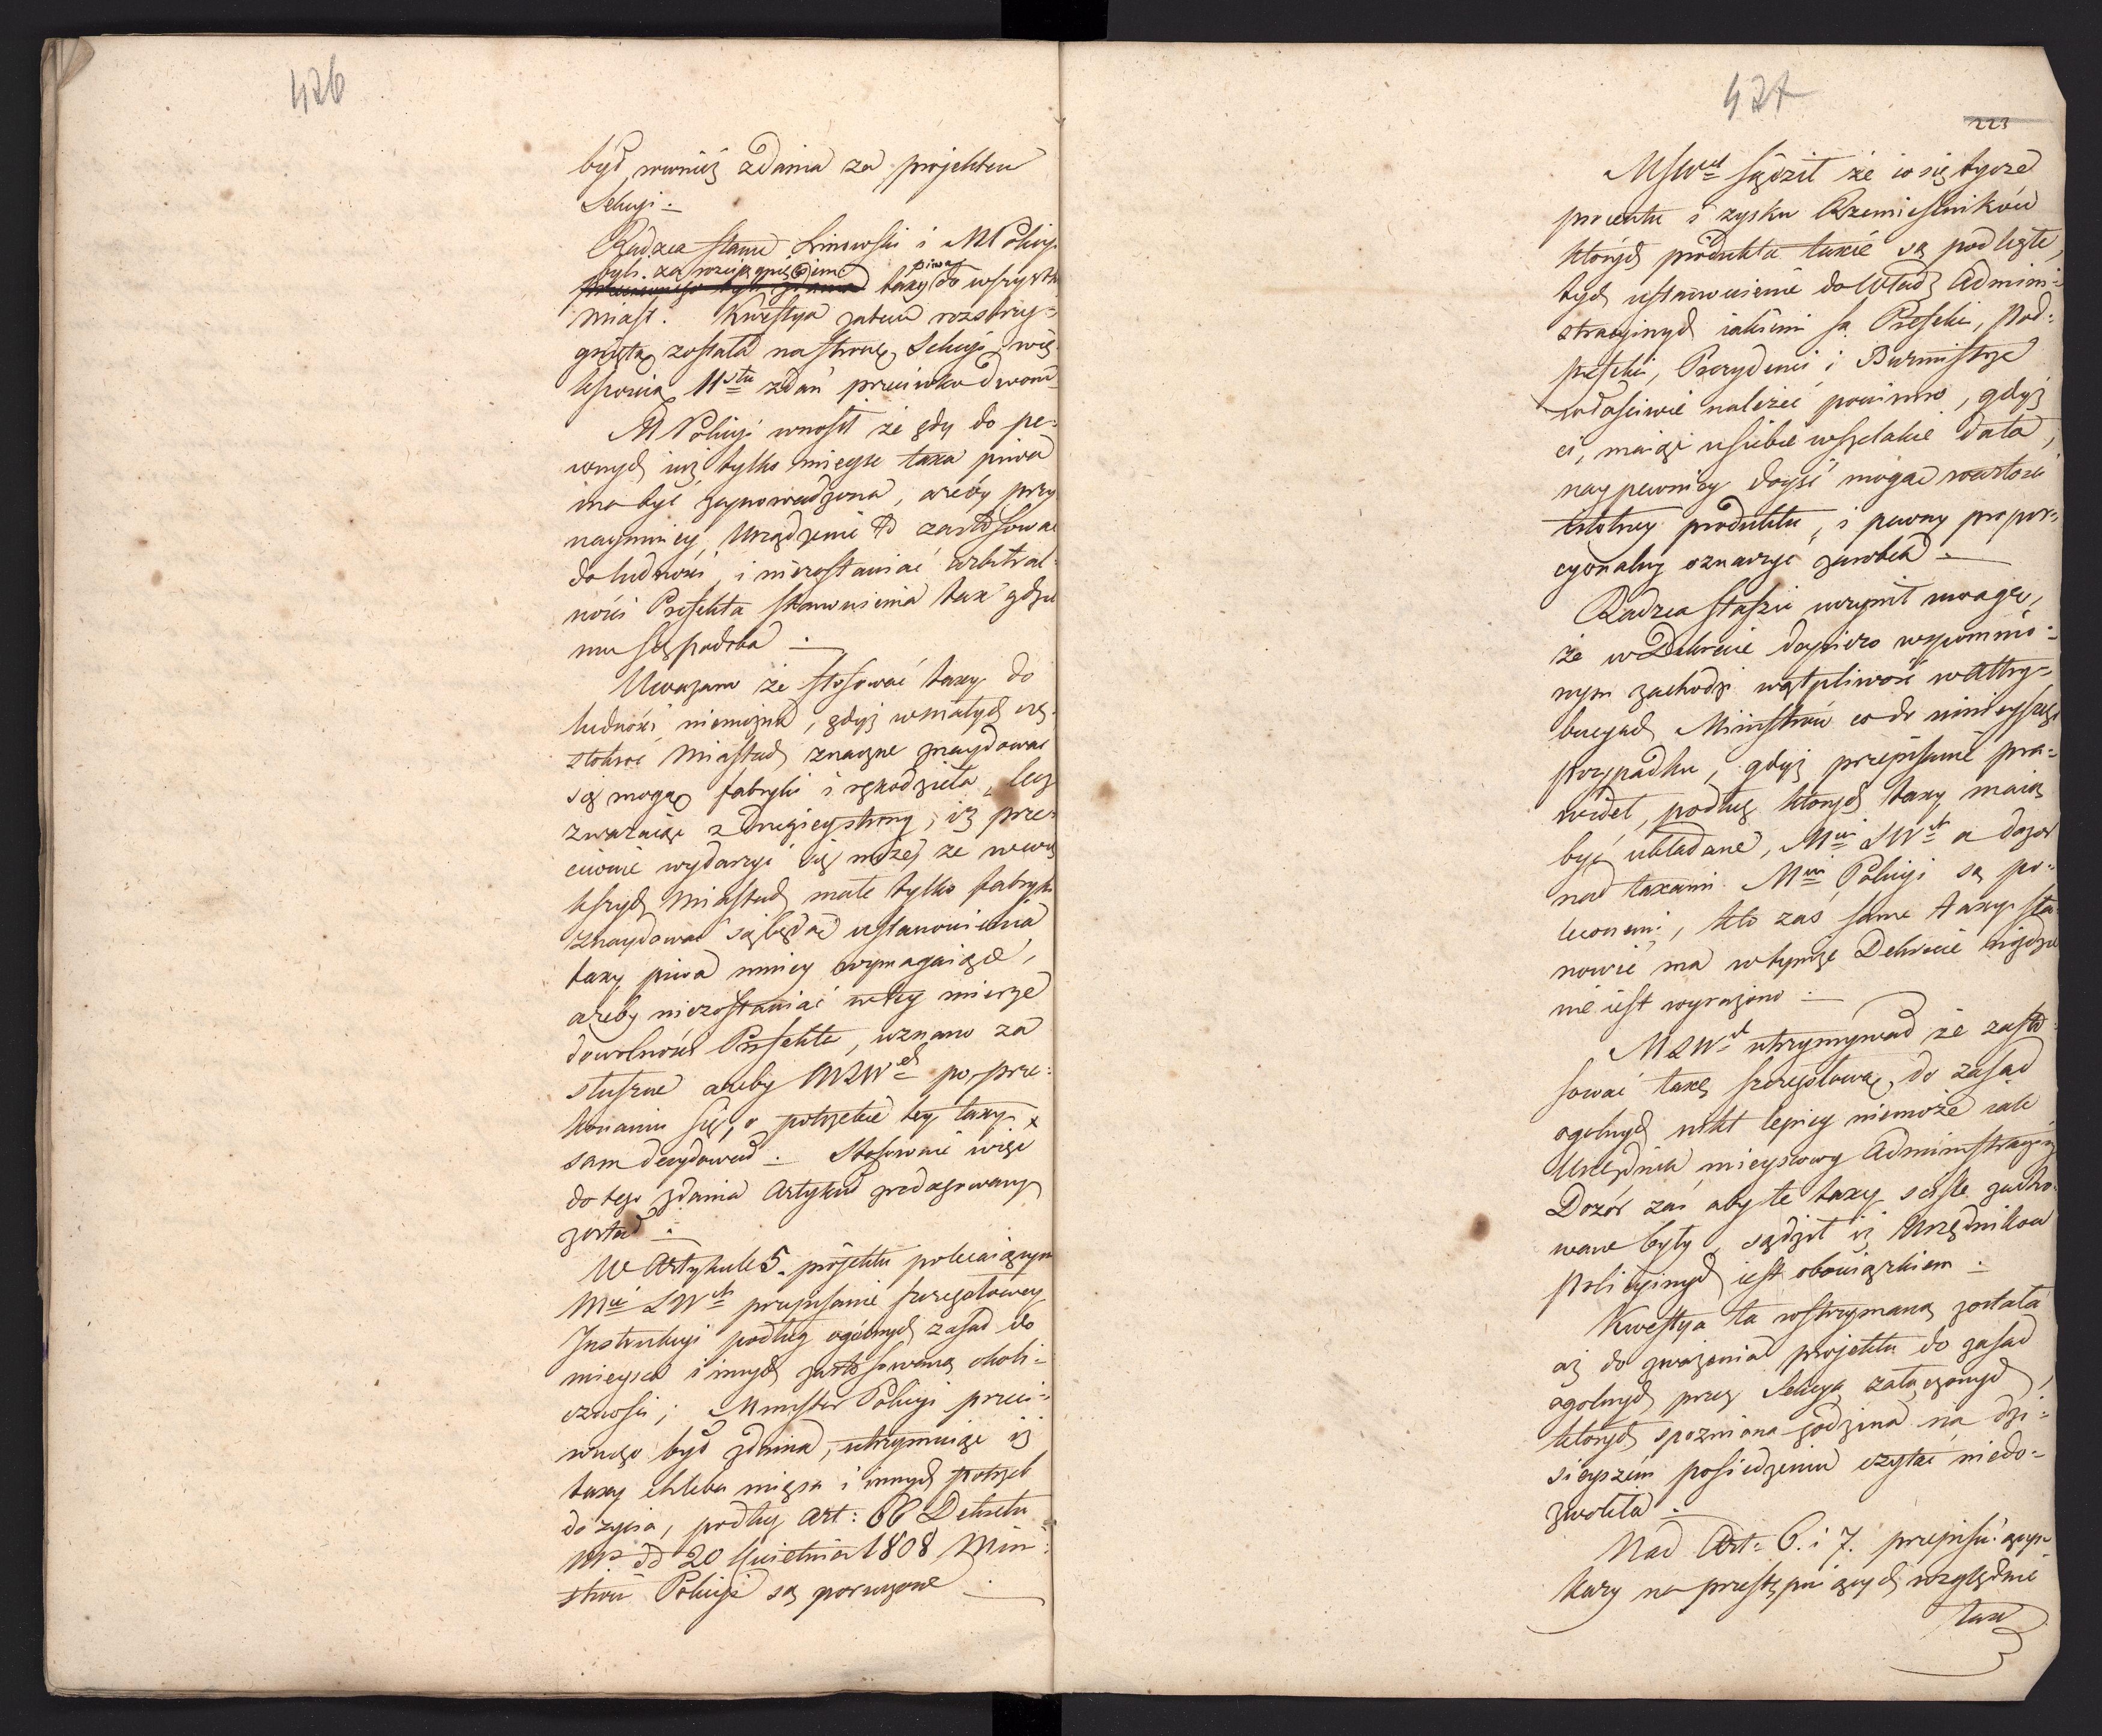 426
był, rowniéż zdania za projektem
Sekcyi. —
Radzca Stanu Linowski i M Policyi
byli za rozciągnięciem
taxy piwa do wszystk
miast. Kwestya zatem rozstrzy=
gniętą została na stronę Sekcyi wię
kszością 11stu zdań przeciwko dwom
M Policyi wnosił że gdy do pe=
wnych iuż tylko mieysc taxa piwa
ma być zaprowadzona, ażeby przy
naymniey Urządzenie to zastosować
do ludności, i niezostawiać arbitral=
ności Prefekta stanowienia tax gdzie
mu się podoba —
Uważano że stosować taxy do
ludności niemożna, gdyż w małych czę=
stokroć Miastach znaczne znaydować
się mogą fabryki i rękodzieła, lecz
zważaiąc z drugiey strony, iż prze=
ciwnie wydarzyć się może, że w wię
kszych Miastach małe tylko fabryki
znaydować się będą ustanowienia
taxy piwa mniey wymagaiące,
ażeby niezostawiać w tey mierze
dowolności Prefekta, uznano za
słuszne ażeby MSWch po prze=
konaniu się, o potrzebie tey taxy
sam decydował. — Stosownie więc
do tego zdania Artykuł zredagowany
został —
W Artykule 5. projektu polecaiącym
Mwi SWch przepisanie szczegułowey
Instrukcyi podług ogólnych zasad do
mieysca i innych zastosowaną okoli=
czności; Minister Policyi przeci=
wnego był zdania, utrzymuiąc iż
taxy chleba mięsa i innych potrzeb
do życia, podług Art: 66 Dekretu
NP. dd 20 Kwietnia 1808 Mini=
strowi Policyi są poruczone —
427
223
MSWch sądził że co się tycze
procentu i zysku Rzemieślników
których produkta taxie są podległe,
tych ustanowienie do Władz Admini=
stracyinych iakiemi są Prefekci, Pod=
prefekci, Prezydenci i Burmistrze
właściwie należeć powinno, gdyż
ci, maiąc u siebie wszelakie data,
naypewniey doyść mogą wartości
istotney produktu, i pewny propor=
cyonalny oznaczyć zarobek —
Radzca Staszic uczynił uwagę,
że w Dekrecie dopiero wspomnio=
nym zachodzi wątpliwość w Attry=
bucyach Ministrów co do ninieyszego
przypadku, gdyż przepisanie pra=
wideł, podług których taxy maią
być układane, Mwi SWch a dozor
nad taxami Mwi Policyi są po=
lecone, kto zaś same taxy sta=
nowić ma w tymże Dekrecie nigdzie
nie iest wyrażono —
MSWch utrzymywał że zasto=
sować taxę szczegułową do zasad
ogolnych nikt lepiey niemoże iak
Urzędnik mieyscowy Administracyiny
Dozór zaś aby te taxy ściśle zacho=
wane były sądził iż Urzędników
policyinych iest obowiązkiem —
Kwestya ta wstrzymaną została
aż do zważenia projektu do zasad
ogolnych przez Sekcyą załączonych,
których spozniona godzina na dzi=
sieyszém posiedzeniu czytać niedo=
zwoliła —
Nad Art. 6. i 7. przepisuiącym
kary na przestępuiących względnie
tax